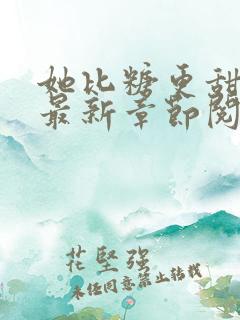 她比糖更甜
最新章節閱
花堅強
未经同意禁止转载